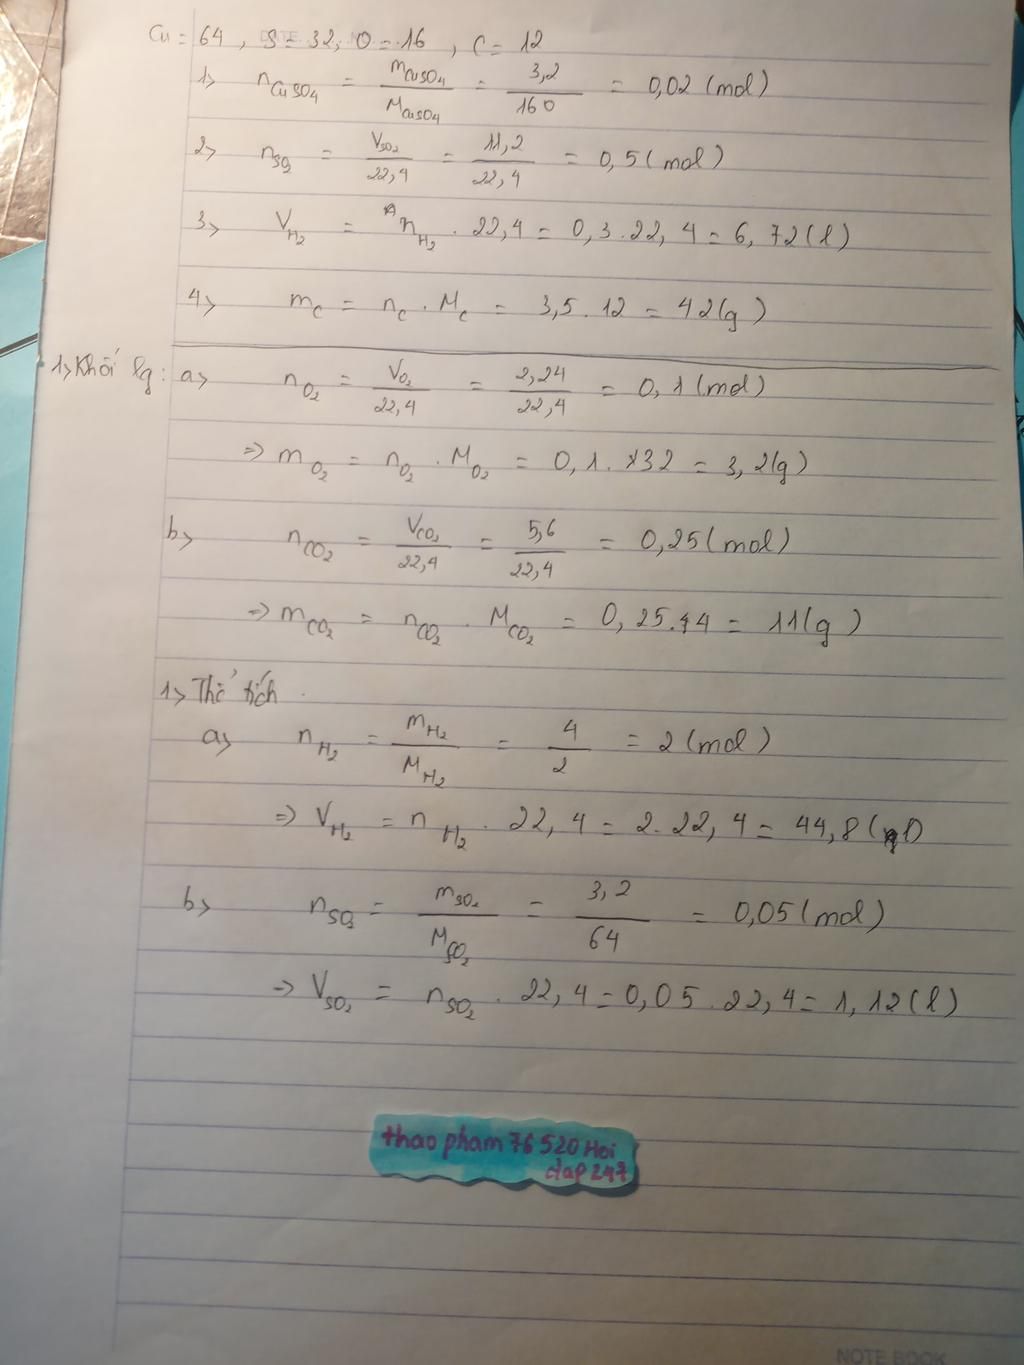 Cu = 64, S = 32, O = 16, C = 12
1> nCuSO4 = mCuSO4 / MCuSO4 = 3,2 / 160 = 0,02 (mol)
2> nSO2 = VSO2 / 22,4 = 11,2 / 22,4 = 0,5 (mol)
3> VH2 = nH2 . 22,4 = 0,3 . 22,4 = 6,72 (l)
4> mC = nC . MC = 3,5 . 12 = 42 (g)
1> Khối lg: a> nO2 = VO2 / 22,4 = 2,24 / 22,4 = 0,1 (mol)
=> mO2 = nO2 . MO2 = 0,1 . x32 = 3,2 (g)
b> nCO2 = VCO2 / 22,4 = 5,6 / 22,4 = 0,25 (mol)
=> mCO2 = nCO2 . MCO2 = 0,25 . 44 = 11 (g)
1> Thể tích
a> nH2 = mH2 / MH2 = 4 / 2 = 2 (mol)
=> VH2 = nH2 . 22,4 = 2 . 22,4 = 44,8 (l)
b> nSO2 = mSO2 / MSO2 = 3,2 / 64 = 0,05 (mol)
=> VSO2 = nSO2 . 22,4 = 0,05 . 22,4 = 1,12 (l)
thao pham 76520 Hoi
đap 247
NOTE BOOK